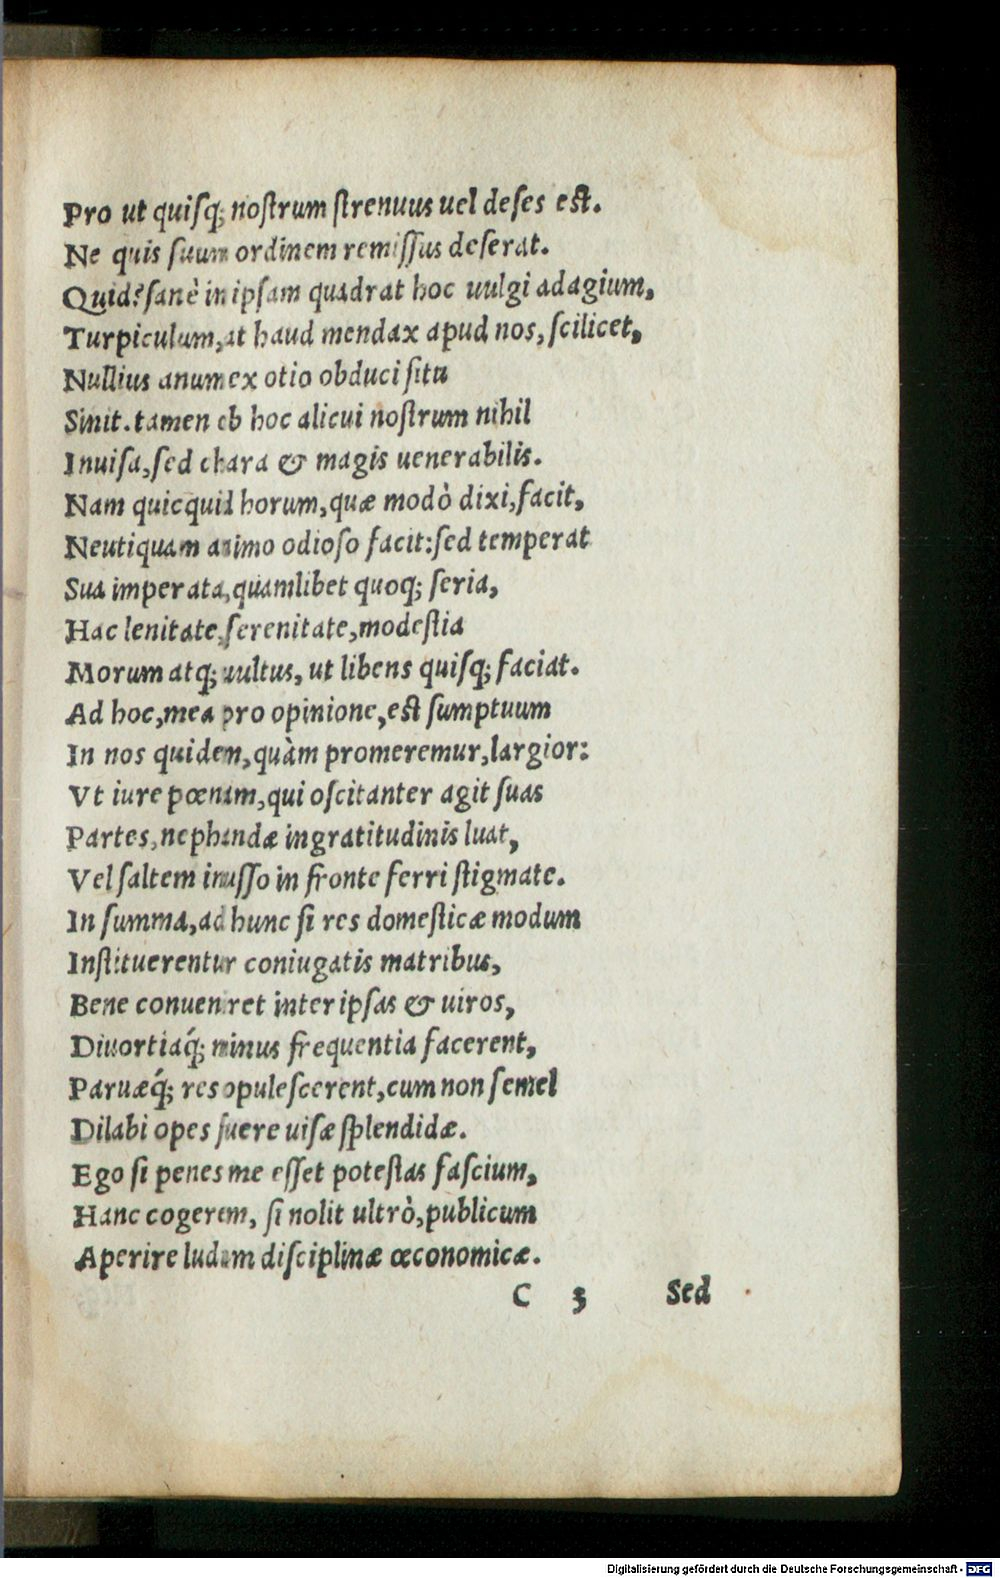 Pro ut quiſq; noſtrum ſtrenuus uel deſes eſt.
Ne quis ſuum ordinem remiſſus deſerat.
Quid? ſanè in ipſam quadrat hoc uulgi adagium,
Turpiculum, at haud mendax apud nos, ſcilicet,
Nullius anum ex otio obduci ſitu
Sinit. tamen ob hoc alicui noſtrum nihil
Inuiſa, ſed chara & magis uenerabilis.
Nam quicquid horum, quæ modò dixi, facit,
Neutiquam animo odioſo facit: ſed temperat
Sua imperata, quamlibet quoq; ſeria,
Hac lenitate, ſerenitate, modeſtia
Morum atq; uultus, ut libens quiſq; faciat.
Ad hoc, mea pro opinione, eſt ſumptuum
In nos quidem, quàm promeremur, largior:
Vt iure pœnam, qui oſcitanter agit ſuas
Partes, nephandæ ingratitudinis luat,
Vel ſaltem inuſſo in fronte ferri ſtigmate.
In ſumma, ad hunc ſi res domeſticæ modum
Inſtituerentur coniugatis matribus,
Bene conueniret inter ipſas & uiros,
Diuortiaq́; minus frequentia facerent,
Paruæq́; res opuleſcerent, cum non ſemel
Dilabi opes fuere uiſæ ſplendidæ.
Ego ſi penes me eſſet poteſtas faſcium,
Hanc cogerem, ſi nolit ultrò, publicum
Aperire ludum diſciplinæ œconomicæ.
C 3 Sed
Digitalisierung gefördert durch die Deutsche Forschungsgemeinschaft - DFG